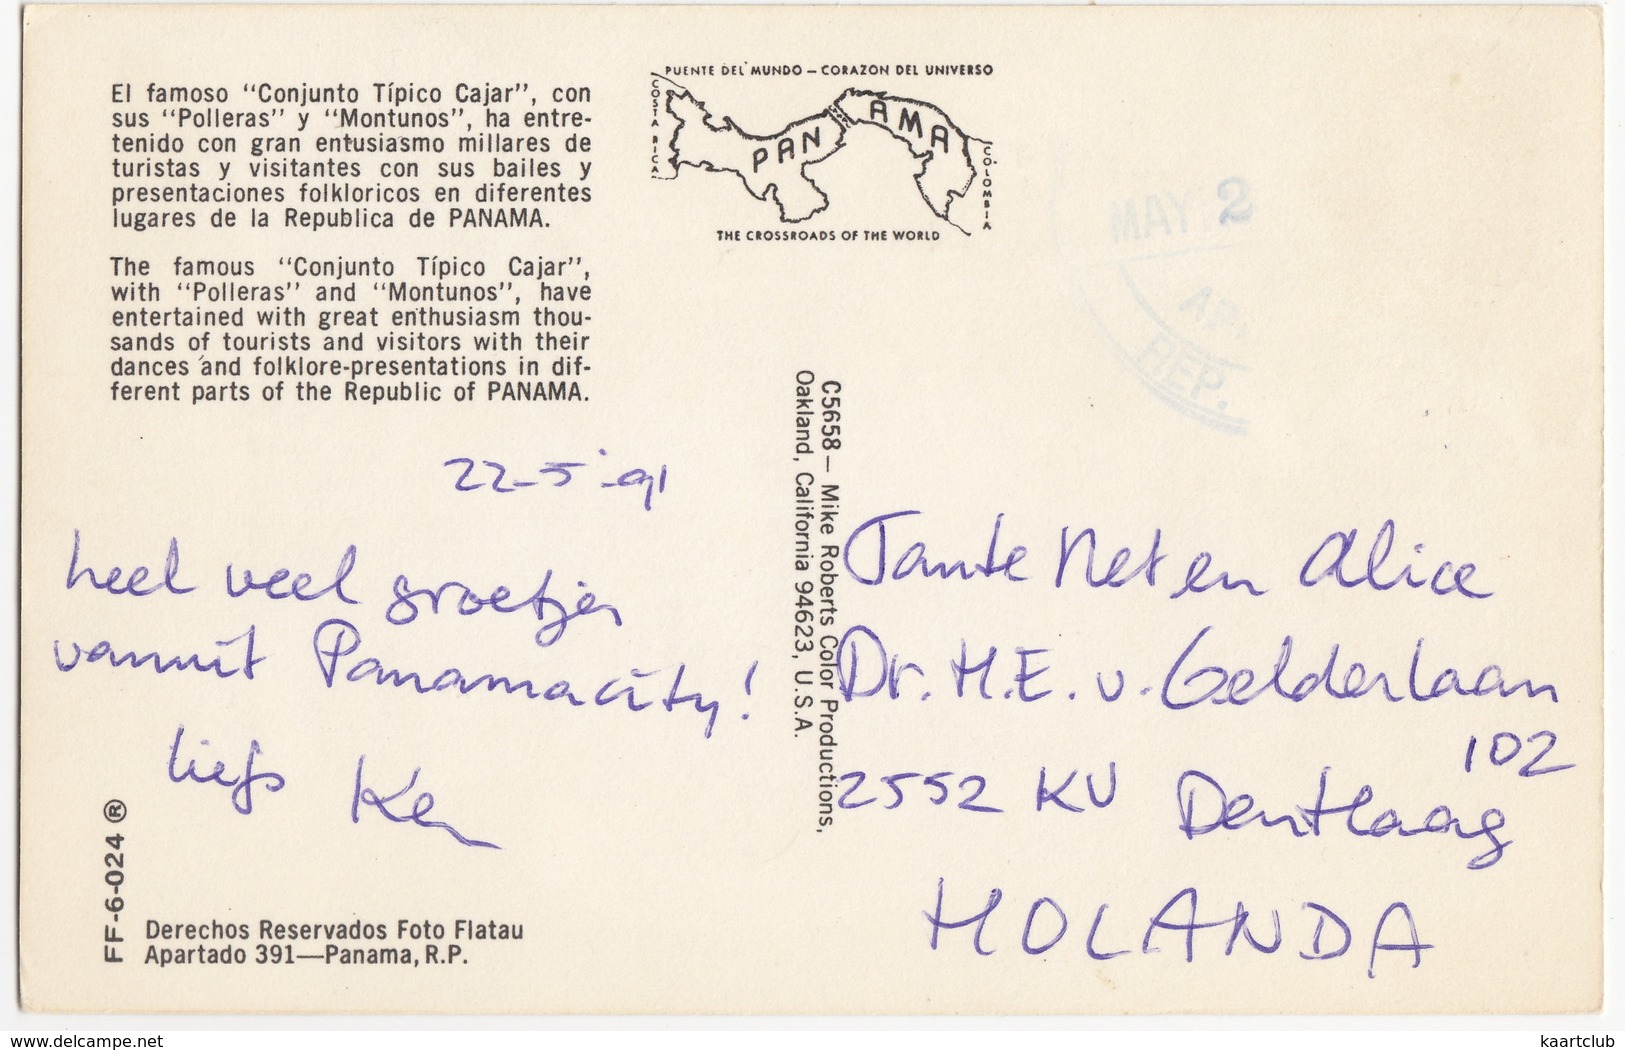 El famoso “Conjunto Típico Cajar”, con
sus “Polleras” y “Montunos”, ha entre-
tenido con gran entusiasmo millares de
turistas y visitantes con sus bailes y
presentaciones folkloricos en diferentes
lugares de la Republica de PANAMA.
The famous “Conjunto Típico Cajar”,
with “Polleras” and “Montunos”, have
entertained with great enthusiasm thou-
sands of tourists and visitors with their
dances and folklore-presentations in dif-
ferent parts of the Republic of PANAMA.
PUENTE DEL MUNDO – CORAZON DEL UNIVERSO
COSTA RICA
PANAMA
COLOMBIA
THE CROSSROADS OF THE WORLD
MAY 2
REP.
C5658 — Mike Roberts Color Productions,
Oakland, California 94623, U.S.A.
22-5-'91
heel veel groetjes
vanuit Panamacity!
liefs Ken
Tante Net en Alice
Dr. H.E. v. Gelderlaan
102
2552 KV Den Haag
HOLANDA
FF-6-024 ®
Derechos Reservados Foto Flatau
Apartado 391—Panama, R.P.
www.delcampe.net
kaartclub